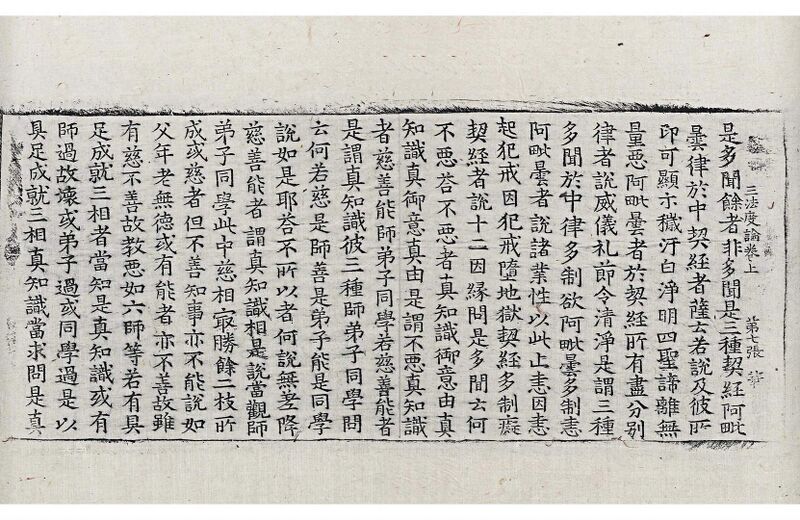 三法度論卷上 第七張
是多聞餘者非多聞是三種契経阿毗
曇律於中契経者薩云若說及彼所
印可顯示穢汙白淨明四聖諦離無
量悪阿毗曇者於契経所有盡分別
律者說威儀礼節令清淨是謂三種
多聞於中律多制欲阿毗曇多制恚
阿毗曇者說諸業性以此止恚因恚
起犯戒因犯戒墮地獄契経多制癡
契経者說十二因縁問是多聞云何
不悪荅不悪者真知識御意由真
知識真御意真由是謂不悪真知識
者慈善能師弟子同學若慈善能者
是謂真知識彼三種師弟子同學問
云何若慈是師善是弟子能是同學
說如是耶荅不所以者何說無差降
慈善能者謂真知識相是說當觀師
弟子同學此中慈相㝡勝餘二枝所
成或慈者但不善知事亦不能說如
父年老無德或有能者亦不善故雖
有慈不善故教悪如六師等若有具
足成就三相者當知是真知識或有
師過故壞或弟子過或同學過是以
具足成就三相真知識當求問是真